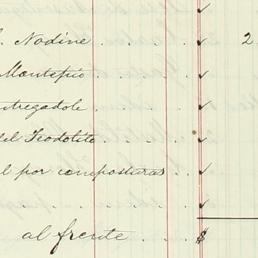 . Nadine . . . . ✓ 2
Montepío . . . . ✓
ntregadole . . . ✓
del Teodolito . . . ✓
l por composturas . ✓
al frente . . . $